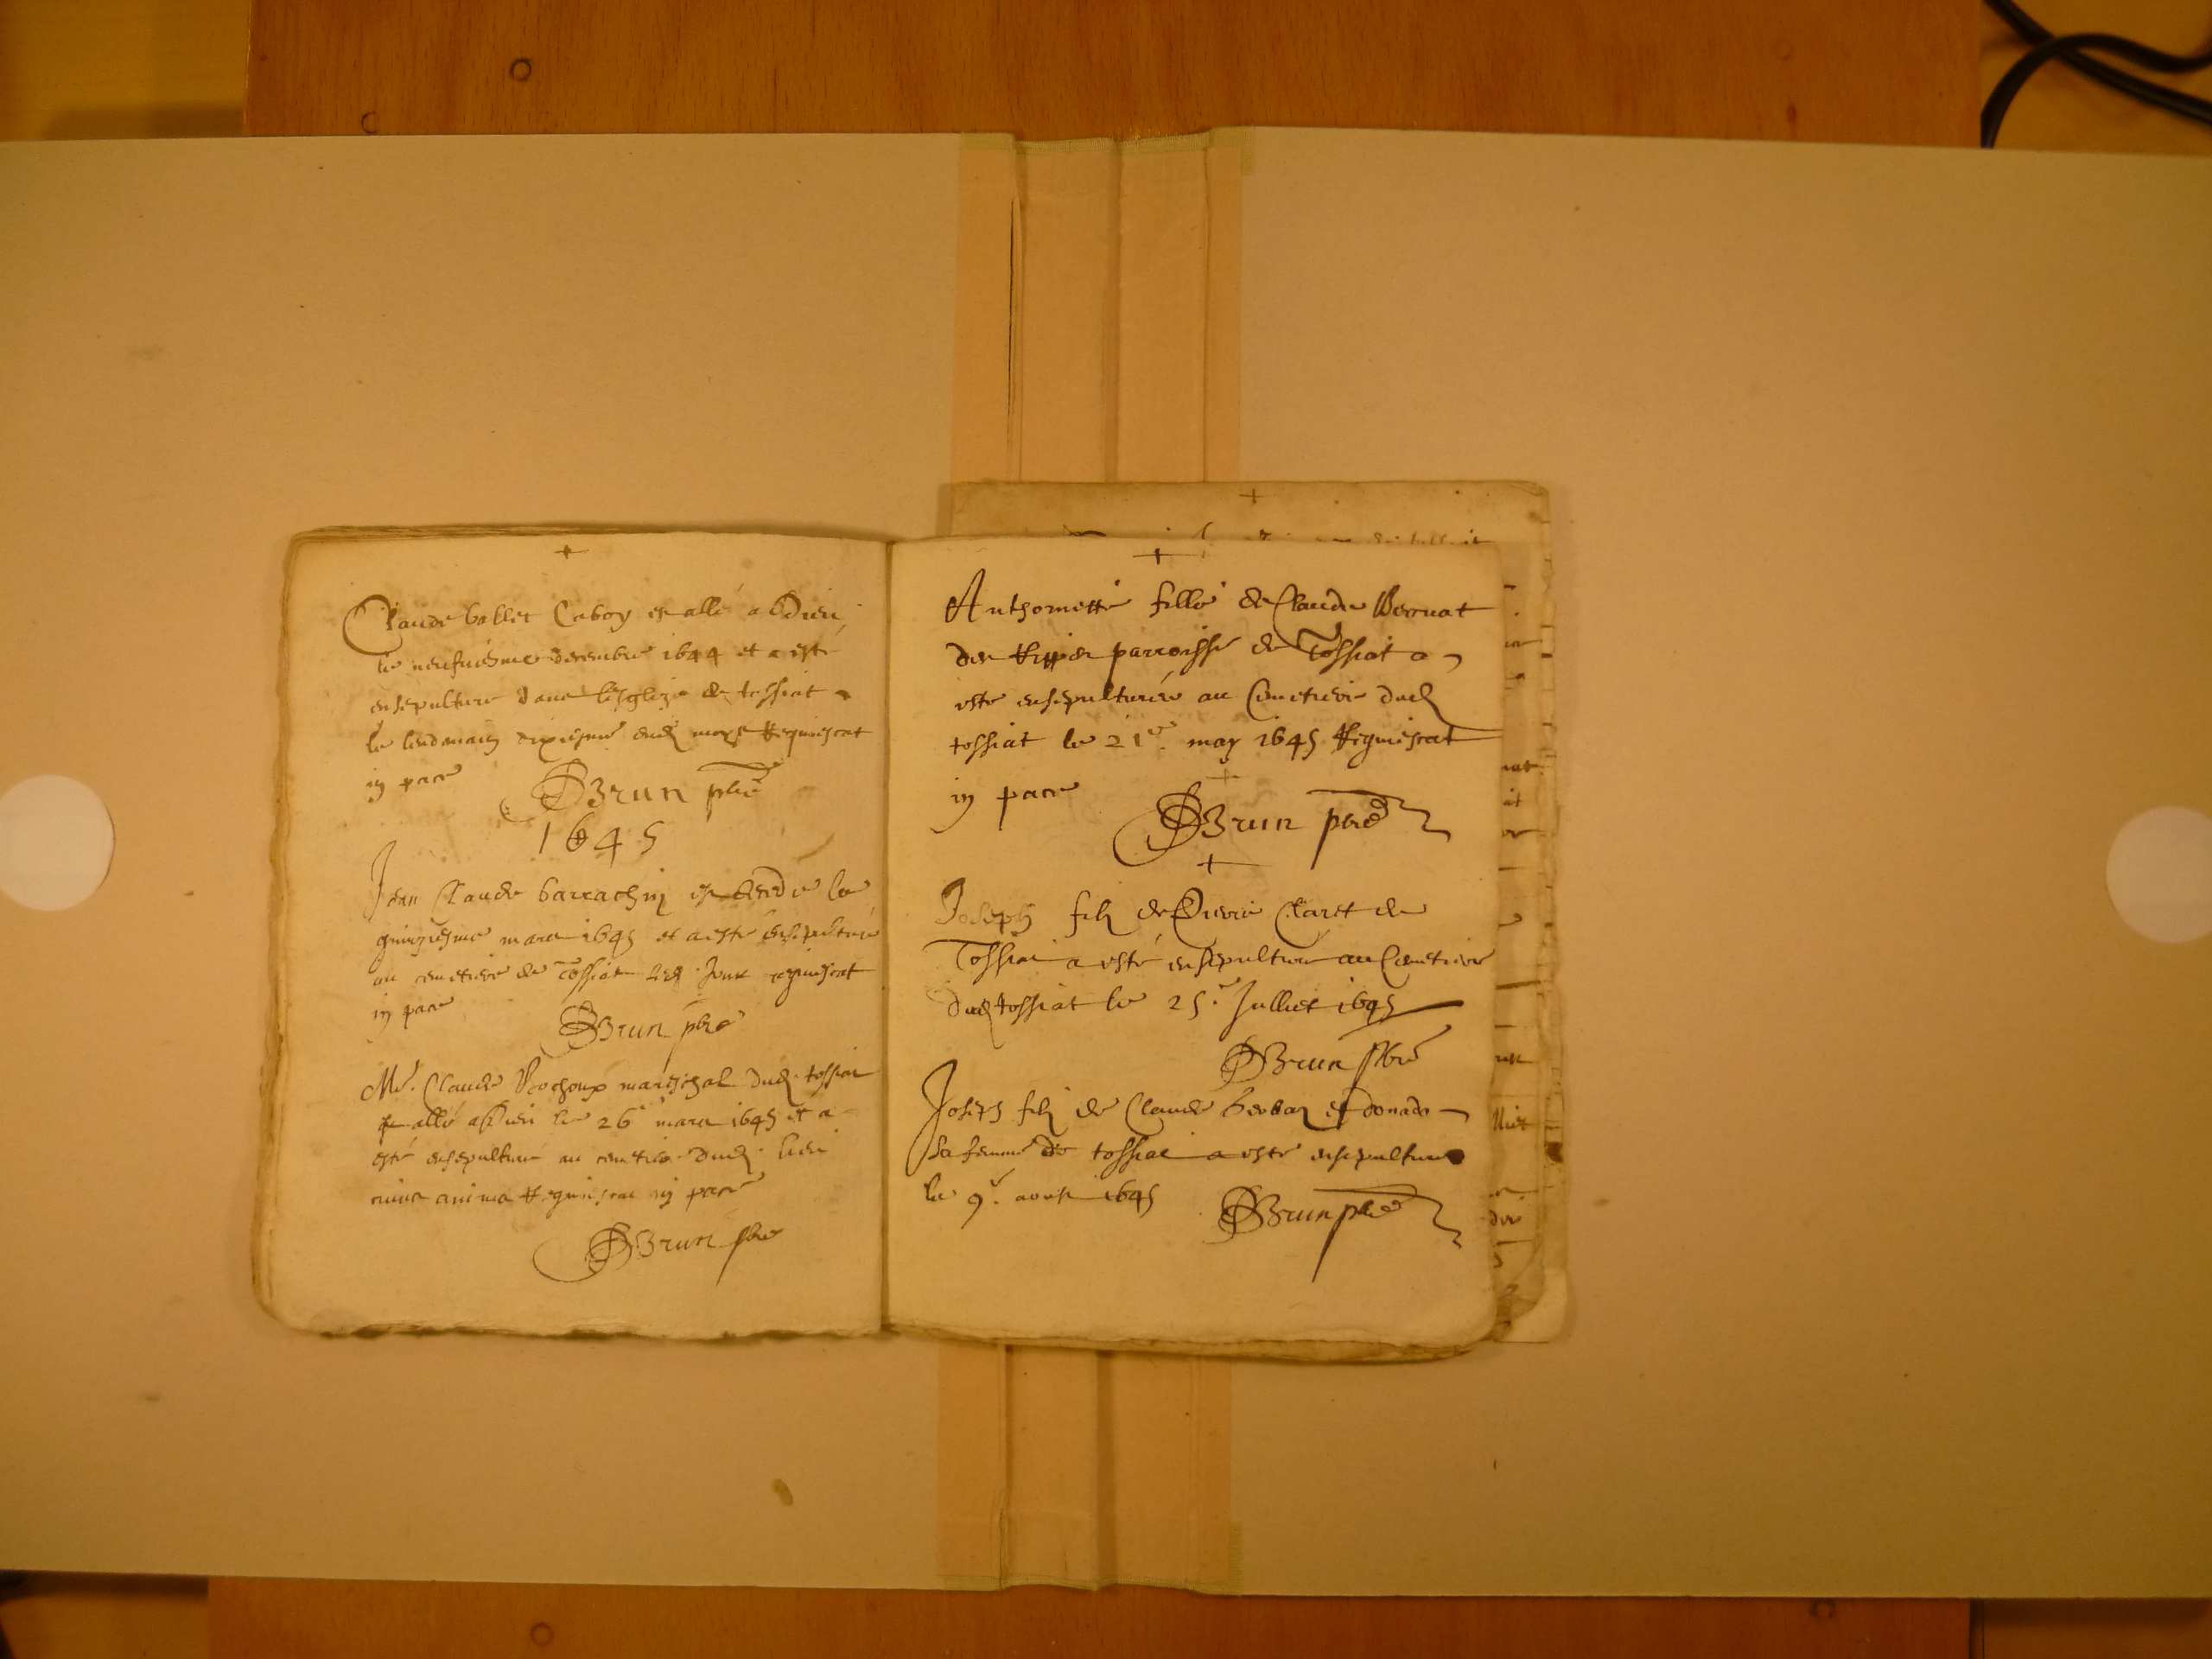 +
Claude ballet Caboy est allé a Dieu
le neufuiesme decembre 1644 et a esté
ensepulture dans lesglize de tossiat
le lendemain dixiesme dud mois Requiescat
in pace DBrun pbre
1645
Jean Claude barrachin est le
quinziesme mars 1645 et a esté ensepulturé
au cemetiere de Tossiat led jour requiescat
in pace
DBrun pbre
Me. Claude Rochoux mareschal dud tossiat
est allé a Dieu le 26 mars 1645 et a
esté ensepulturé au cemetiere dud lieu
cuius anima Requiescat in pace
DBrun pbre
+
Anthoinette fille de Claude Bernat
de parroisse de Tossiat a
esté ensepulturée au Cimetiere dud
tossiat le 21e may 1645 Requiescat
in pace
DBrun pbre
+
Joseph filz de Pierre Claret de
Tossiat a esté ensepulturé au Cemetiere
dud tossiat le 25e Julliet 1645
DBrun pbre
Joseph filz de Claude et donade
sa femme de tossiat a esté ensepulturé
le 9e aoust 1645 DBrun pbre